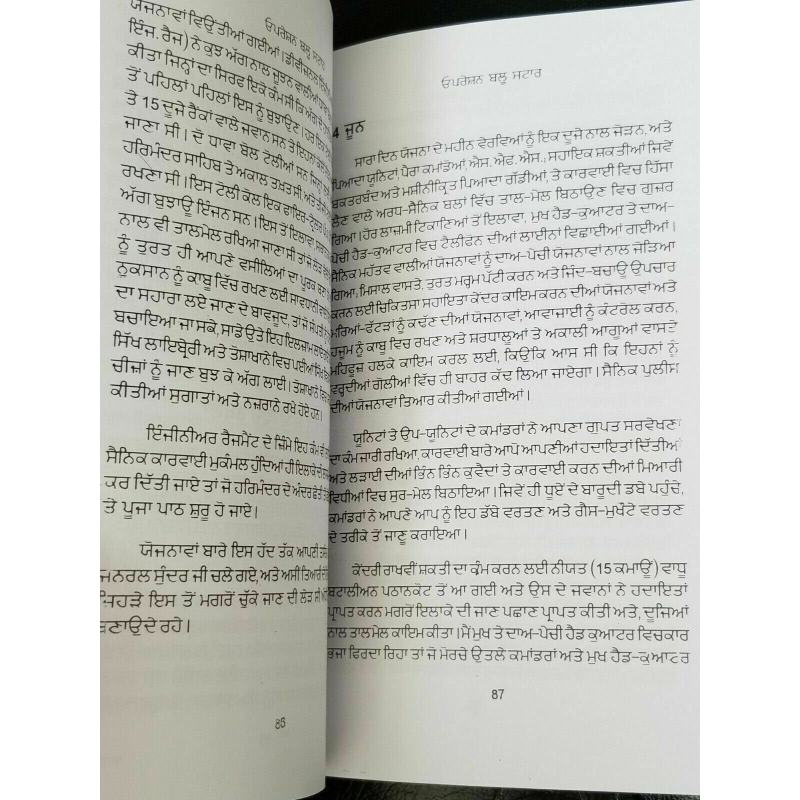 ਓਪਰੇਸ਼ਨ ਬਲੂ ਸਟਾਰ
ਯੋਜਨਾਵਾਂ ਵਿਉਂਤੀਆਂ ਗਈਆਂ। ਡੀਵੀਜ਼ਨਲ
ਇੰਜ. ਰੈਜ) ਨੇ ਕੁਝ ਅੱਗ ਨਾਲ ਜੂਝਨ ਵਾਲੀਆਂ
ਕੀਤਾ ਜਿਨ੍ਹਾਂ ਦਾ ਸਿਰਫ ਇਕੋ ਕੰਮ ਸੀ ਕਿ ਅੱਗ
ਤੋਂ ਪਹਿਲਾਂ ਪਹਿਲਾਂ ਇਸ ਨੂੰ ਬੁਝਾਉਣ। ਹਰ ਇਕ
ਤੇ 15 ਦੂਜੇ ਰੈਂਕਾਂ ਵਾਲੇ ਜਵਾਨ ਸਨ ਤੇ ਇਹਨਾਂ
ਜਾਣਾ ਸੀ। ਦੋ ਧਾਵਾ ਬੋਲ ਟੋਲੀਆਂ ਸਨ ਜਿਨ੍ਹਾਂ
ਹਰਿਮੰਦਰ ਸਾਹਿਬ ਤੇ ਅਕਾਲ ਤਖ਼ਤ ਸੀ, ਅਤੇ
ਰਖਣਾ ਸੀ। ਇਸ ਟੋਲੀ ਕੋਲ ਇਕ ਫਾਇਰ-ਟ੍ਰੇਲਰ
ਅੱਗ ਬੁਝਾਊ ਇੰਜਨ ਸਨ। ਇਸ ਤੋਂ ਇਲਾਵਾ,
ਨਾਲ ਵੀ ਤਾਲਮੇਲ ਰਖਿਆ ਜਾਣਾ ਸੀ ਤਾਂ ਜੋ ਲੋੜ
ਨੂੰ ਤੁਰਤ ਹੀ ਆਪਣੇ ਵਸੀਲਿਆਂ ਦਾ ਪੂਰਕ ਬਣਾ
ਨੁਕਸਾਨ ਨੂੰ ਕਾਬੂ ਵਿੱਚ ਰਖਣ ਲਈ ਸਾਵਧਾਨੀ
ਦਾ ਸਹਾਰਾ ਲਏ ਜਾਣ ਦੇ ਬਾਵਜੂਦ, ਤਾਂ ਜੋ ਸੰਪਤੀ
ਬਚਾਇਆ ਜਾ ਸਕੇ, ਸਾਡੇ ਉਤੇ ਇਹ ਇਲਜ਼ਾਮ
ਸਿੱਖ ਲਾਇਬ੍ਰੇਰੀ ਅਤੇ ਤੋਸ਼ਾਖਾਨੇ ਵਿਚ ਪਈਆਂ ਸਿੱਖ
ਚੀਜ਼ਾਂ ਨੂੰ ਜਾਣ ਬੁਝ ਕੇ ਅੱਗ ਲਾਈ। ਤੋਸ਼ਾਖਾਨੇ ਵਿਚ
ਕੀਤੀਆਂ ਸੁਗਾਤਾਂ ਅਤੇ ਨਜ਼ਰਾਨੇ ਰਖੇ ਹੋਏ ਹਨ।
ਇੰਜੀਨੀਅਰ ਰੈਜਮੈਂਟ ਦੇ ਜ਼ਿੰਮੇ ਇਹ ਕੰਮ ਵੀ
ਸੈਨਿਕ ਕਾਰਵਾਈ ਮੁਕੰਮਲ ਹੁੰਦਿਆਂ ਹੀ ਇਲਾਕੇ ਦੀ
ਕਰ ਦਿੱਤੀ ਜਾਏ ਤਾਂ ਜੋ ਹਰਿਮੰਦਰ ਦੇ ਅੰਦਰ ਛੇਤੀ ਤੋਂ
ਤੇ ਪੂਜਾ ਪਾਠ ਸ਼ੁਰੂ ਹੋ ਜਾਏ।
ਯੋਜਨਾਵਾਂ ਬਾਰੇ ਇਸ ਹੱਦ ਤੱਕ ਆਪਣੀ
ਜਨਰਲ ਸੁੰਦਰ ਜੀ ਚਲੇ ਗਏ, ਅਤੇ ਅਸੀ ਤਿਆਰੀ
ਜਿਹੜੇ ਇਸ ਤੋਂ ਮਗਰੋਂ ਚੁੱਕੇ ਜਾਣ ਦੀ ਲੋੜ ਸੀ
ਬਣਾਉਂਦੇ ਰਹੇ।
86
ਓਪਰੇਸ਼ਨ ਬਲੂ ਸਟਾਰ
4 ਜੂਨ
ਸਾਰਾ ਦਿਨ ਯੋਜਨਾ ਦੇ ਮਹੀਨ ਵੇਰਵਿਆਂ ਨੂੰ ਇਕ ਦੂਜੇ ਨਾਲ ਜੋੜਨ, ਅਤੇ
ਪਿਆਦਾ ਯੂਨਿਟਾਂ, ਪੈਰਾ ਕਮਾਂਡੋਆਂ, ਐਸ. ਐਫ. ਐਸ., ਸਹਾਇਕ ਸ਼ਕਤੀਆਂ ਜਿਵੇਂ
ਬਕਤਰਬੰਦ ਅਤੇ ਮਸ਼ੀਨੀਕ੍ਰਿਤ ਪਿਆਦਾ ਗੱਡੀਆਂ, ਤੇ ਕਾਰਵਾਈ ਵਿਚ ਹਿੱਸਾ
ਲੈਣ ਵਾਲੇ ਅਰਧ-ਸੈਨਿਕ ਬਲਾਂ ਵਿੱਚ ਤਾਲ-ਮੇਲ ਬਿਠਾਉਣ ਵਿਚ ਗੁਜ਼ਰ
ਗਿਆ। ਹੋਰ ਲਾਜ਼ਮੀ ਟਿਕਾਣਿਆਂ ਤੋਂ ਇਲਾਵਾ, ਮੁਖ ਹੈਡ-ਕੁਆਟਰ ਤੇ ਦਾਅ-
ਪੇਚੀ ਹੈਡ-ਕੁਆਟਰ ਵਿਚ ਟੈਲੀਫੂਨ ਦੀਆਂ ਲਾਈਨਾਂ ਵਿਛਾਈਆਂ ਗਈਆਂ।
ਸੈਨਿਕ ਮਹੱਤਵ ਵਾਲੀਆਂ ਯੋਜਨਾਵਾਂ ਨੂੰ ਦਾਅ-ਪੇਚੀ ਯੋਜਨਾਵਾਂ ਨਾਲ ਜੋੜਿਆ
ਗਿਆ, ਮਿਸਾਲ ਵਾਸਤੇ, ਤੁਰਤ ਮਰ੍ਹਮ ਪੱਟੀ ਕਰਨ ਅਤੇ ਜਿੰਦ-ਬਚਾਊ ਉਪਚਾਰ
ਕਰਨ ਲਈ ਚਿਕਿਤਸਾ ਸਹਾਇਤਾ ਕੇਂਦਰ ਕਾਇਮ ਕਰਨ ਦੀਆਂ ਯੋਜਨਾਵਾਂ ਅਤੇ
ਮਰਿਆਂ-ਫੱਟੜਾਂ ਨੂੰ ਕਢੱਣ ਦੀਆਂ ਯੋਜਨਾਵਾਂ, ਆਵਾਜਾਈ ਨੂੰ ਕੰਟਰੋਲ ਕਰਨ,
ਹਜੂਮ ਨੂੰ ਕਾਬੂ ਵਿਚ ਰਖਣ ਅਤੇ ਸ਼ਰਧਾਲੂਆਂ ਤੇ ਅਕਾਲੀ ਆਗੂਆਂ ਵਾਸਤੇ
ਮਹਿਫੂਜ਼ ਹਲਕੇ ਕਾਇਮ ਕਰਲ ਲਈ, ਕਿਉਂਕਿ ਆਸ ਸੀ ਕਿ ਇਹਨਾਂ ਨੂੰ
ਵਰ੍ਹਦੀਆਂ ਗੋਲੀਆਂ ਵਿੱਚ ਹੀ ਬਾਹਰ ਕੱਢ ਲਿਆ ਜਾਏਗਾ। ਸੈਨਿਕ ਪੁਲੀਸ
ਦੀਆਂ ਯੋਜਨਾਵਾਂ ਤਿਆਰ ਕੀਤੀਆਂ ਗਈਆਂ।
ਯੂਨਿਟਾਂ ਤੇ ਉਪ-ਯੂਨਿਟਾਂ ਦੇ ਕਮਾਂਡਰਾਂ ਨੇ ਆਪਣਾ ਗੁਪਤ ਸਰਵੇਖਣ
ਦਾ ਕੰਮ ਜਾਰੀ ਰਖਿਆ, ਕਾਰਵਾਈ ਬਾਰੇ ਆਪੋ ਆਪਣੀਆਂ ਹਦਾਇਤਾਂ ਦਿੱਤੀਆਂ
ਅਤੇ ਲੜਾਈ ਦੀਆਂ ਭਿੰਨ ਭਿੰਨ ਕੁਵੈਦਾਂ ਤੇ ਕਾਰਵਾਈ ਕਰਨ ਦੀਆਂ ਮਿਆਰੀ
ਵਿਧੀਆਂ ਵਿਚ ਸੁਰ-ਮੇਲ ਬਿਠਾਇਆ। ਜਿਵੇਂ ਹੀ ਧੂਏਂ ਦੇ ਬਾਰੂਦੀ ਡਬੇ ਪਹੁੰਚੇ,
ਕਮਾਂਡਰਾਂ ਨੇ ਆਪਣੇ ਆਪ ਨੂੰ ਇਹ ਡੱਬੇ ਵਰਤਣ ਅਤੇ ਗੈਸ-ਮੁਖੌਟੇ ਵਰਤਣ
ਦੇ ਤਰੀਕੇ ਤੋਂ ਜਾਣੂ ਕਰਾਇਆ।
ਕੇਂਦਰੀ ਰਾਖਵੀਂ ਸ਼ਕਤੀ ਦਾ ਕੰਮ ਕਰਨ ਲਈ ਨੀਯਤ (15 ਕਮਾਊਂ) ਵਾਧੂ
ਬਟਾਲੀਅਨ ਪਠਾਨਕੋਟ ਤੋਂ ਆ ਗਈ ਅਤੇ ਉਸ ਦੇ ਜਵਾਨਾਂ ਨੇ ਹਦਾਇਤਾਂ
ਪ੍ਰਾਪਤ ਕਰਨ ਮਗਰੋਂ ਇਲਾਕੇ ਦੀ ਜਾਣ ਪਛਾਣ ਪ੍ਰਾਪਤ ਕੀਤੀ ਅਤੇ, ਦੂਜਿਆਂ
ਨਾਲ ਤਾਲਮੇਲ ਕਾਇਮ ਕੀਤਾ। ਮੈਂ ਮੁਖ ਤੇ ਦਾਅ-ਪੇਚੀ ਹੈਡ ਕੁਆਟਰ ਵਿਚਕਾਰ
ਭਜਾ ਫਿਰਦਾ ਰਿਹਾ ਤਾਂ ਜੋ ਮੋਰਚੇ ਉਤਲੇ ਕਮਾਂਡਰਾਂ ਅਤੇ ਮੁਖ ਹੈਡ-ਕੁਆਟਰ
87